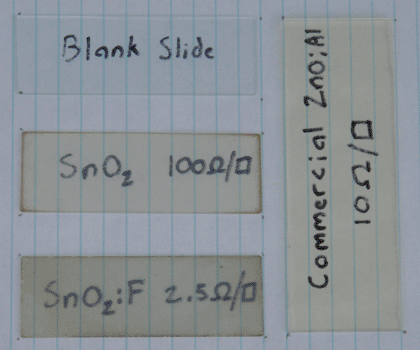 Blank Slide
SnO₂ 100Ω/□
SnO₂:F 2.5Ω/□
Commercial ZnO:Al
10Ω/□